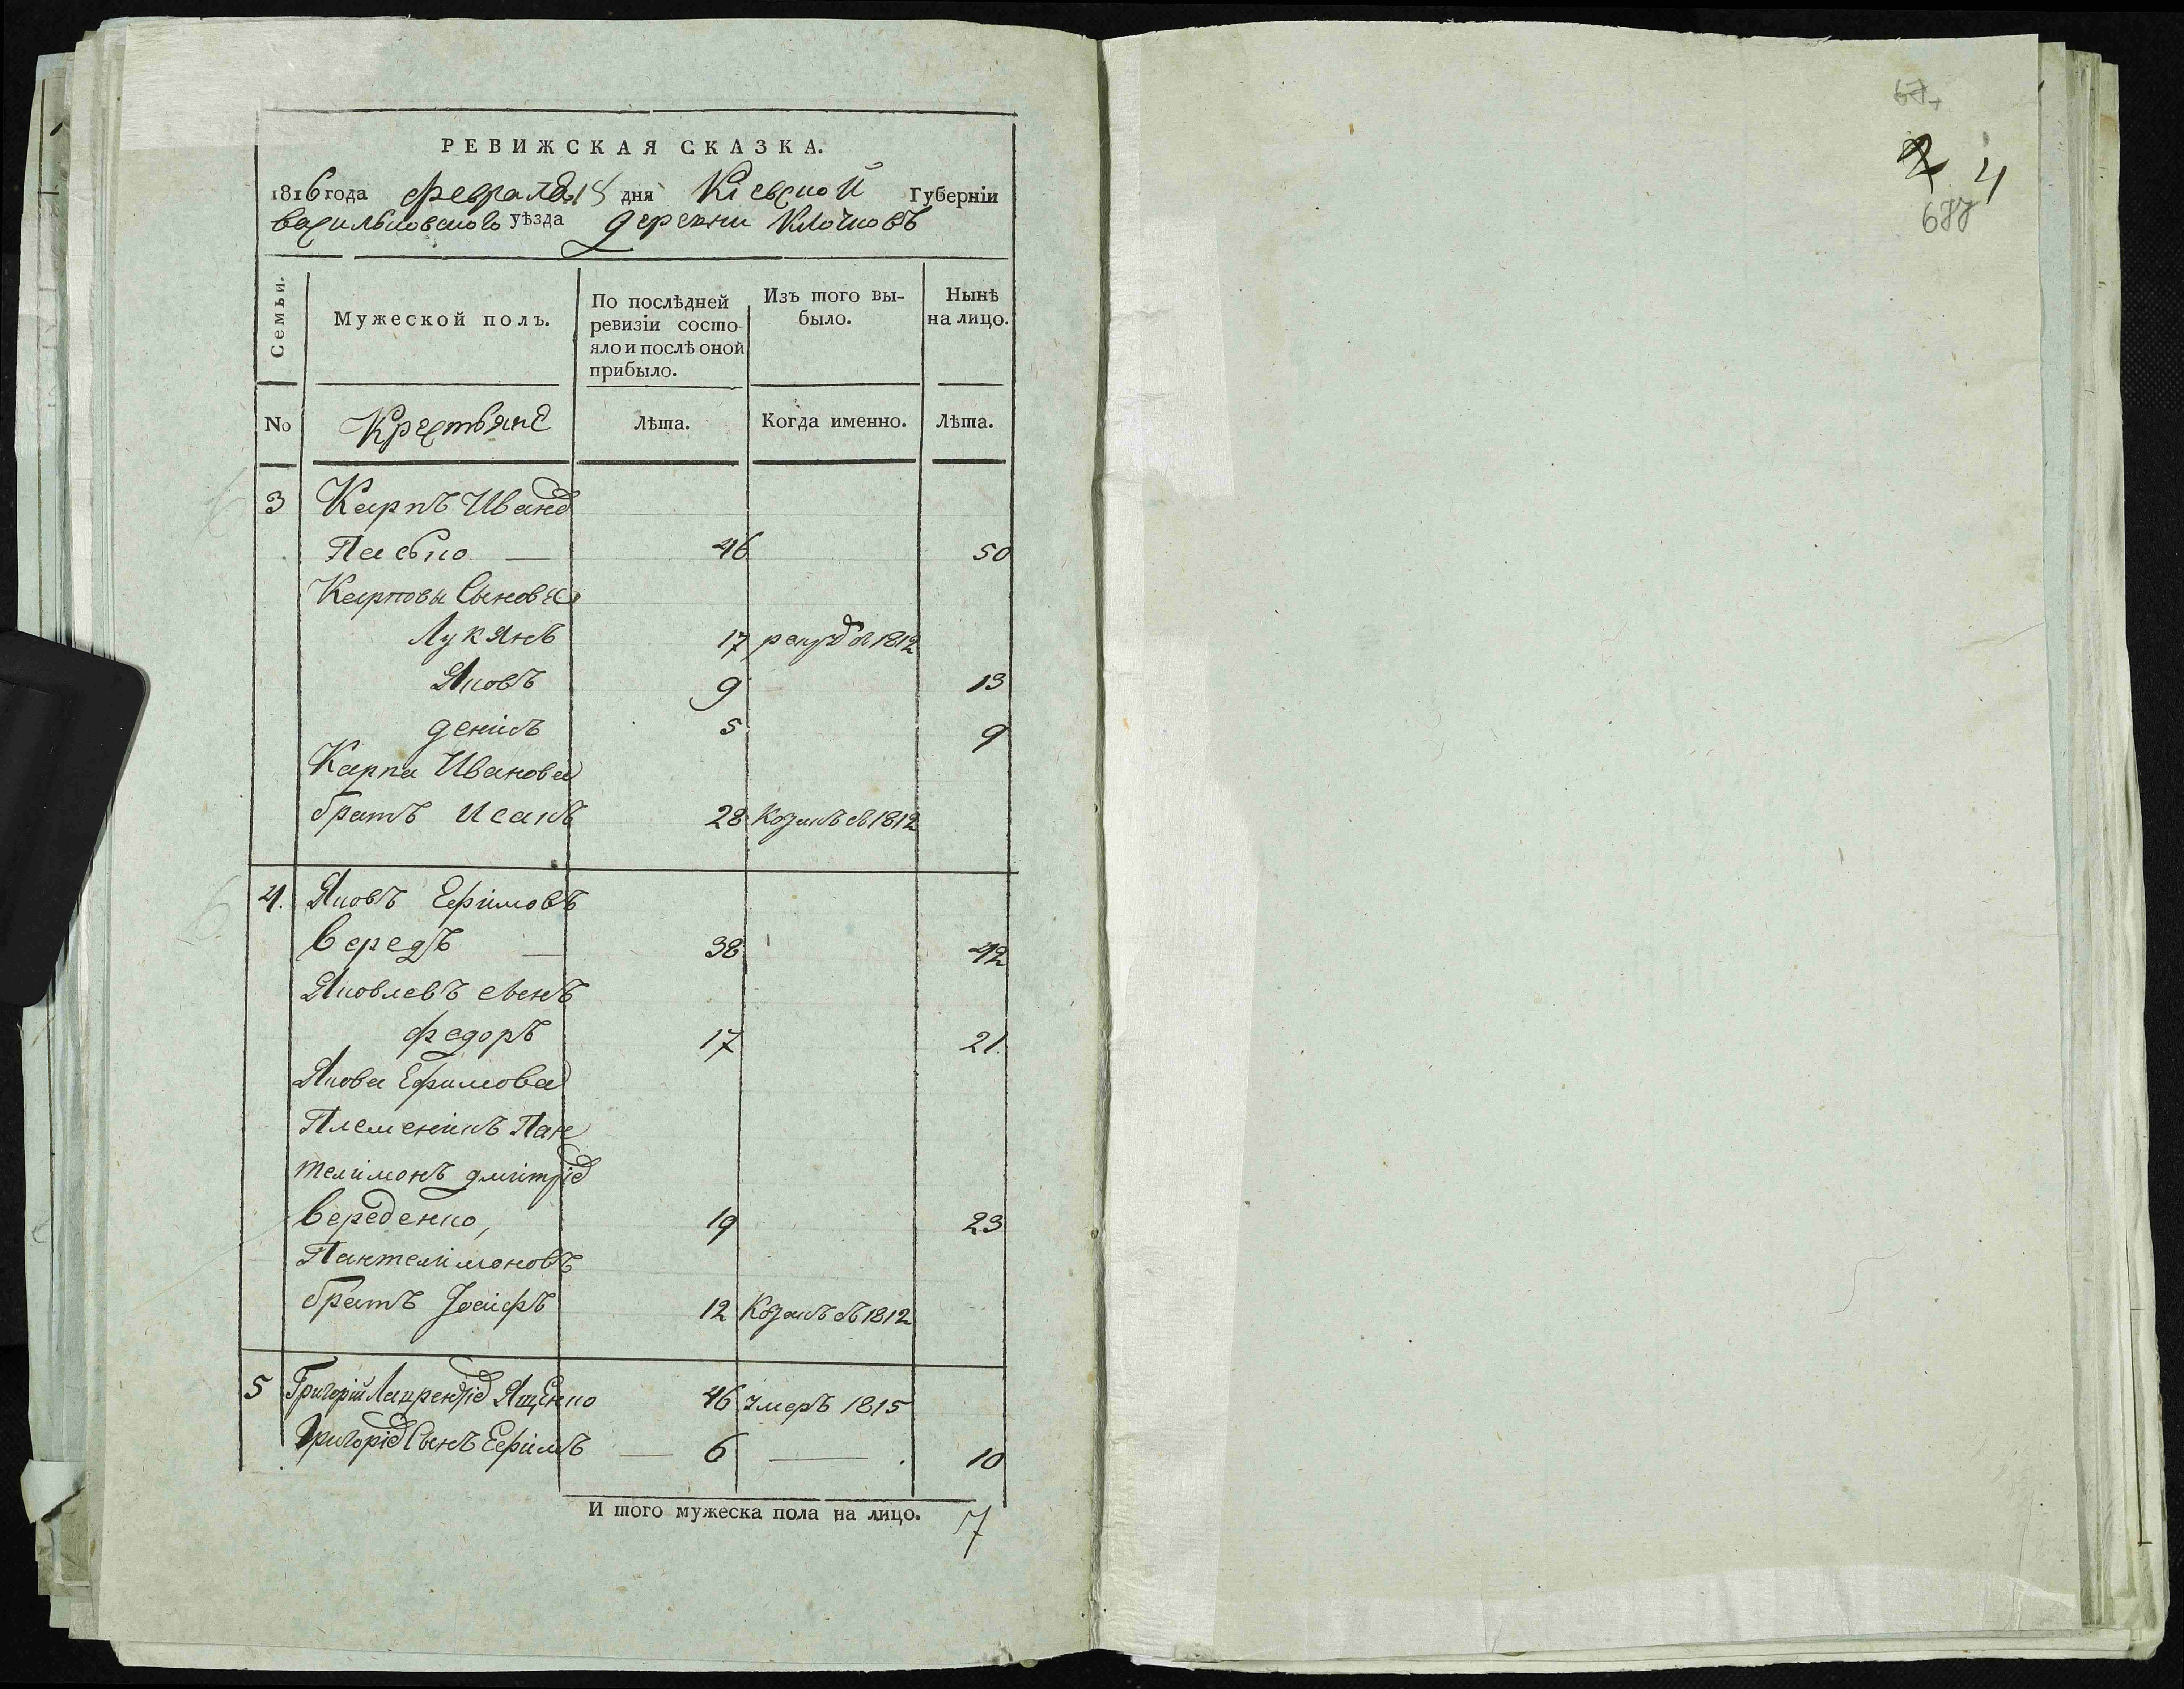 РЕВИЖСКАЯ СКАЗКА.
1816 года февраля 18 дня Кіевской Губерніи
васильковского уѣзда деревни Клочковъ
Семьи.
Мужеской полъ.
По послѣдней ревизіи состояло и послѣ оной прибыло.
Изъ того выбыло.
Нынѣ на лицо.
No Крестьяне Лѣта. Когда именно. Лѣта.
3 Карпъ Иванов
Пасько — 46 50
Карповы Сыновья
Лукянъ 17 рекрут в 1812
Яковъ 9 13
денисъ 5 9
Карпа Иванова
братъ Исакъ 28 Козакъ въ 1812
4. Яковъ Ефимовъ
Середъ — 38 42
Яковлевъ сынъ
федоръ 17 21.
Якова Ефимова
Племеникъ Пан
телимонъ дмитрів
Середенко, 19 23
Пантелимоновъ
братъ Іосифъ 12 Козакъ въ 1812
5 Григорій Лаврентіев Ященко 46 умеръ 1815
Григоріев Сынъ Ефимъ — 6 — 10
И того мужеска пола на лицо. 7
67
2 4
677